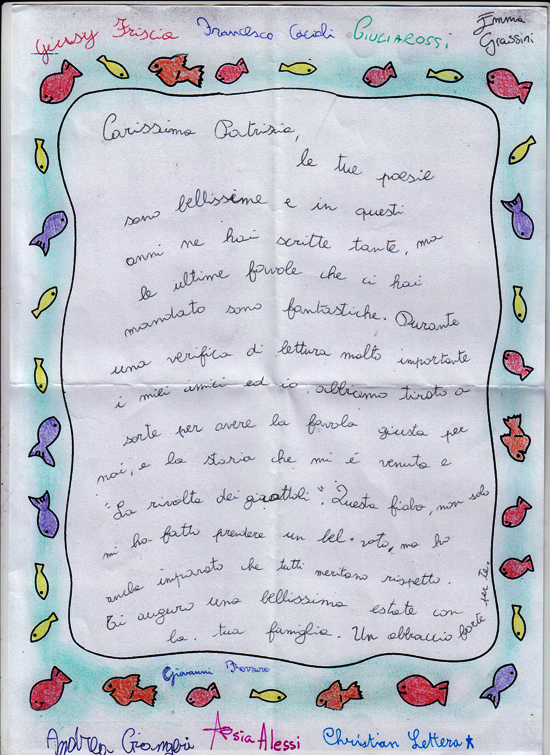 Giusy Friscia Francesco Cacioli GIULIA ROSSI Emma
Grassini
Carissima Patrizia,
le tue poesie
sono bellissime e in questi
anni ne hai scritte tante, ma
le ultime favole che ci hai
mandato sono fantastiche. Durante
una verifica di lettura molto importante
i miei amici ed io abbiamo tirato a
sorte per avere la favola giusta per
noi, e la storia che mi è venuta e
"La rivolta dei giocattoli". Questa fiaba, non solo
mi ha fatto prendere un bel voto, ma ho
anche imparato che tutti meritano rispetto.
Ti auguro una bellissima estate con
la tua famiglia. Un abbraccio forte per te.
Giovanni
Andrea Asia Alessi Christian Lettera